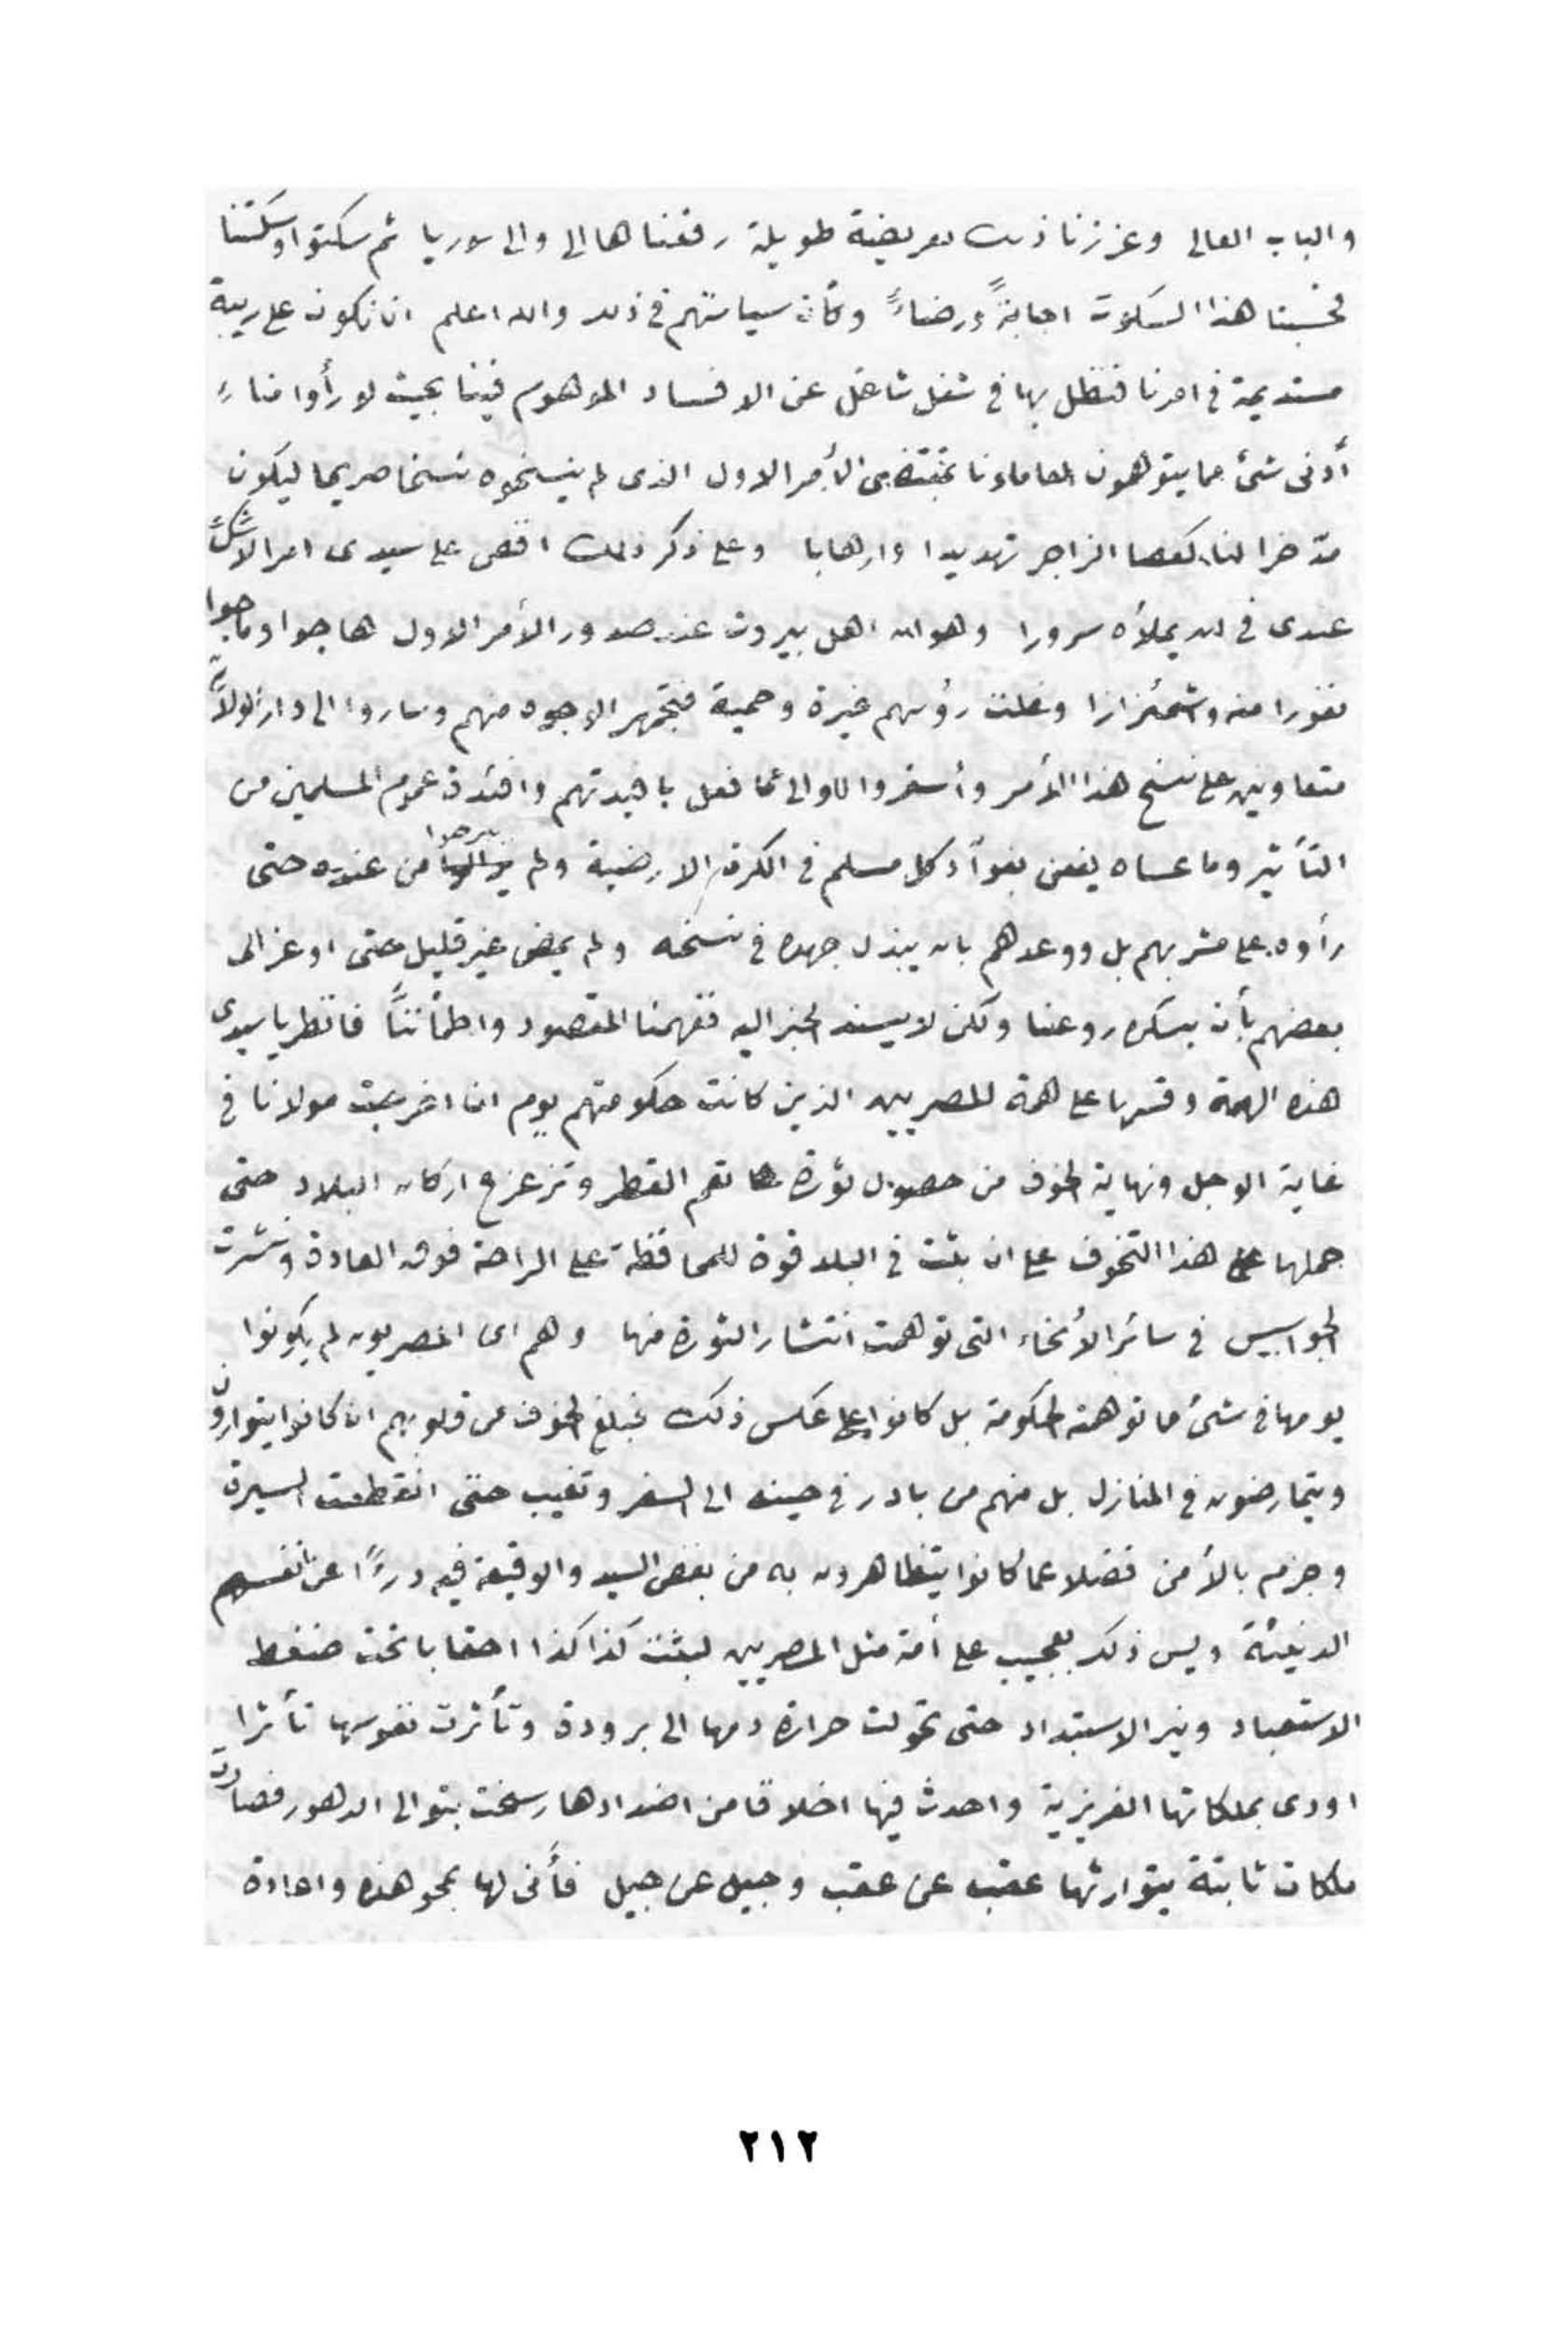 والباب العالى وعززنا ذلك بعريضة طويلة رفعناها الى والى سوريا ثم سكتوا وسكتنا
فحسبنا هذا السكوت اجابةً ورضاءً وكأن سياستهم فى ذلك والله اعلم ان نكون على ريبة
مستديمة فى امرنا فنظل بها فى شغل شاغل عن الافساد الموهوم فينا بحيث لو رأوا منا
أدنى شئ مما يتوهمون لعاملونا بمقتضى الأمر الاول الذى لم ينسخوه نسخا صريحا ليكون
مدّخرا لنا كعصا الزاجر تهديدا وارهابا وعلى ذكر ذلك اقص على سيدى امرا لا شك
عندى فى انه يملأه سرورا وهو ان اهل بيروت عند صدور الأمر الاول هاجوا وماجوا
نفورا منه واشمئزازا وغلت رؤسهم غيرة وحمية فتجمهر الوجوه منهم وساروا الى دار الولاية
متعاونين على نسخ هذا الأمر وأسفروا للوالى عما فعل بافئدتهم وافئدة عموم المسلمين من
التأثير وما عساه يفعل بفوآد كل مسلم فى الكرة الارضية ولم يبرحوا من عنده حتى
رأوه على مشربهم بل ووعدهم بانه يبذل جهده فى نسخه ولم يمض غير قليل حتى اوعز الى
بعضهم بأن يسكن روعنا ولكن لا يسند الخبر اليه ففهمنا المقصود واطمأننَّا فانظر يا سيدى
هذه الهمة وقسها على همة المصريين الذين كانت حكومتهم يوم ان اخرجت مولانا فى
غاية الوجل ونهاية الخوف من حصول ثورة تعم القطر وتزعزع اركان البلاد حتى
حملها هذا التخوف على ان بثت فى البلد قوة للمحافظة على الراحة فوق العادة ونشرت
الجواسيس فى سائر الأنحاء التى توهمت انتشار الثورة منها وهم اى المصريون لم يكونوا
يومها فى شئ مما توهمته الحكومة بل كانوا على عكس ذلك فبلغ الخوف من قلوبهم ان كانوا يتوارون
ويتمارضون فى المنازل بل منهم من بادر فى حينه الى السفر وتغيب حتى انقطعت السيرة
وجزم بالأمن فضلا عما كانوا يتظاهرون به من بغض السيد والوقيعة فيه درءًا عن انفسهم
الدنيئة وليس ذلك بعجيب على أمة مثل المصريين لبثت كذا كذا احقابا تحت ضغط
الاستعباد ونير الاستبداد حتى تحولت حرارة دمها الى برودة وتأثرت نفوسها تأثرا
اودى بملكاتها الغريزية واحدث فيها اخلاقا من اضدادها رسخت بتوالى الدهور فصارت
ملكات ثابتة يتوارثها عقب عن عقب وجيل عن جيل فأنى لها بمحو هذه واعادة
٢١٢